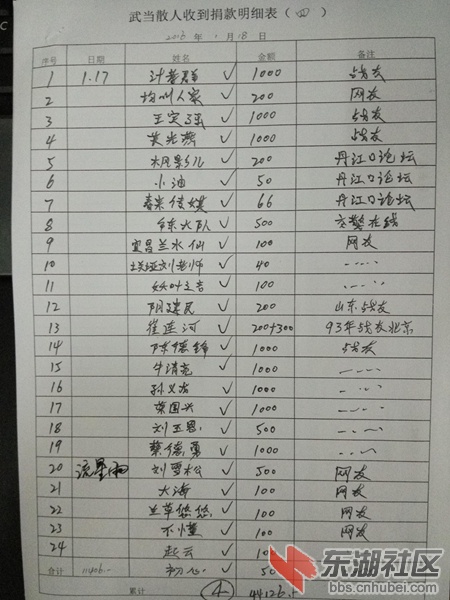 武当散人收到捐款明细表（四）
2016年1月18日
序号 日期 姓名 金额 备注
1 1.17 计春群 ✓ 1000 战友
2 均州人家 ✓ 200 网友
3 王宝强 ✓ 1000 战友
4 吴光燕 ✓ 1000 战友
5 枫影儿 ✓ 200 丹江口论坛
6 小油 ✓ 50 丹江口论坛
7 ✓ 66 丹江口论坛
8 大队 ✓ 500 交警在线
9 宜昌兰水仙 ✓ 100 网友
10 刘老师 ✓ 40
11 ✓ 100
12 阴建民 ✓ 200 山东战友
13 崔连河 ✓ 200+300 93年战友北京
14 陈德锋 ✓ 1000 战友
15 牛清亮 ✓ 1000
16 孙义安 ✓ 1000
17 国兴 ✓ 1000
18 刘玉恩 ✓ 500
19 蔡德勇 ✓ 1000
20 流星雨 刘雪松 ✓ 500 网友
21 大海 ✓ 100 网友
22 兰草悠悠 ✓ 100 网友
23 不懂 ✓ 100 网友
24 起云 ✓
合计 11406.- 初心 ✓
累计 4 44126.-
东湖社区
bbs.cnhubei.com